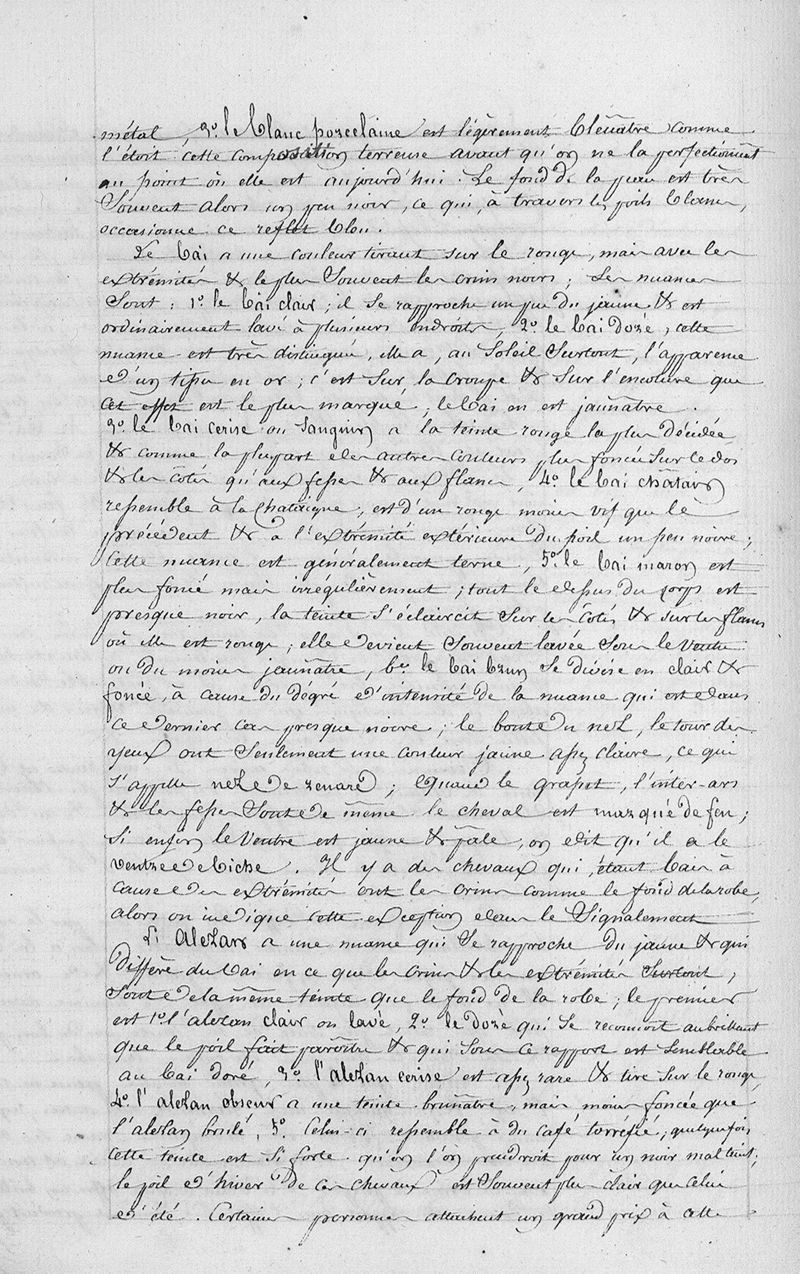 métal, 3º. le blanc porcelaine est légèrement bleuâtre comme
l'étoit cette composition terreuse avant qu'on ne la perfectionnat
au point où elle est aujourd'hui. Le fond de la peau est très
souvent alors un peu noir, ce qui, à travers les poils blancs,
occasionne ce reflet bleu.
Le bai a une couleur tirant sur le rouge, mais avec les
extrémités & le plus souvent les crins noirs; ses nuances
sont: 1º. le bai clair; il se rapproche un peu du jaune & est
ordinairement lavé à plusieurs endroits, 2º. le bai doré, cette
nuance est très distinguée, elle a, au soleil surtout, l'apparence
d'un tissu en or; c'est sur la croupe & sur l'encolure que
cet effet est le plus marqué, le bai en est jaunâtre.
3º. le bai cerise ou sanguin a la teinte rouge la plus décidée
& comme la plupart des autres couleurs plus foncée sur le dos
& les côtés qu'aux fesses & aux flancs, 4º. le bai châtain
ressemble à la chataigne, est d'un rouge moins vif que le
précédent & a l'extrémité extérieure du poil un peu noire;
cette nuance est généralement terne, 5º. le bai maron est
plus foncé mais irrégulièrement; tout le dessus du corps est
presque noir, la teinte s'éclaircit sur les côtés & sur les flancs
où elle est rouge; elle devient souvent lavée sous le ventre
ou du moins jaunâtre, 6º. le bai brun se divise en clair &
foncé, à cause du dégré d'intensité de la nuance qui est dans
ce dernier cas presque noire; le bout du nez, le tour des
yeux ont seulement une couleur jaune assez claire, ce qui
s'appelle nez de renard; Quand le grasset, l'inter-ars
& les fesses sont de même le cheval est marqué de feu;
si enfin le ventre est jaune & pâle, on dit qu'il a le
ventre de biche. Il y a des chevaux qui, étant bais à
cause des extrémités ont les crins comme le fond de la robe,
alors on indique cette exception dans le signalement
L'alezan a une nuance qui se rapproche du jaune & qui
diffère du bai en ce que les crins & les extrémités surtout,
sont de la même teinte que le fond de la robe; le premier
est 1º. l'alezan clair ou lavé, 2º. le doré qui se reconnoit au brillant
que le poil fait paroître & qui sous ce rapport est semblable
au bai doré, 3º. l'alezan cerise est assez rare & tire sur le rouge,
4º. l'alezan obscur a une teinte brunâtre, mais moins foncée que
l'alezan brulé, 5º. Celui-ci ressemble à du café torréfié, quelquefois
cette teinte est si forte qu'on l'on prendroit pour un noir mal teint;
le poil d'hiver de ces chevaux est souvent plus clair que celui
d'été. Certaines personnes attachent un grand prix à cette